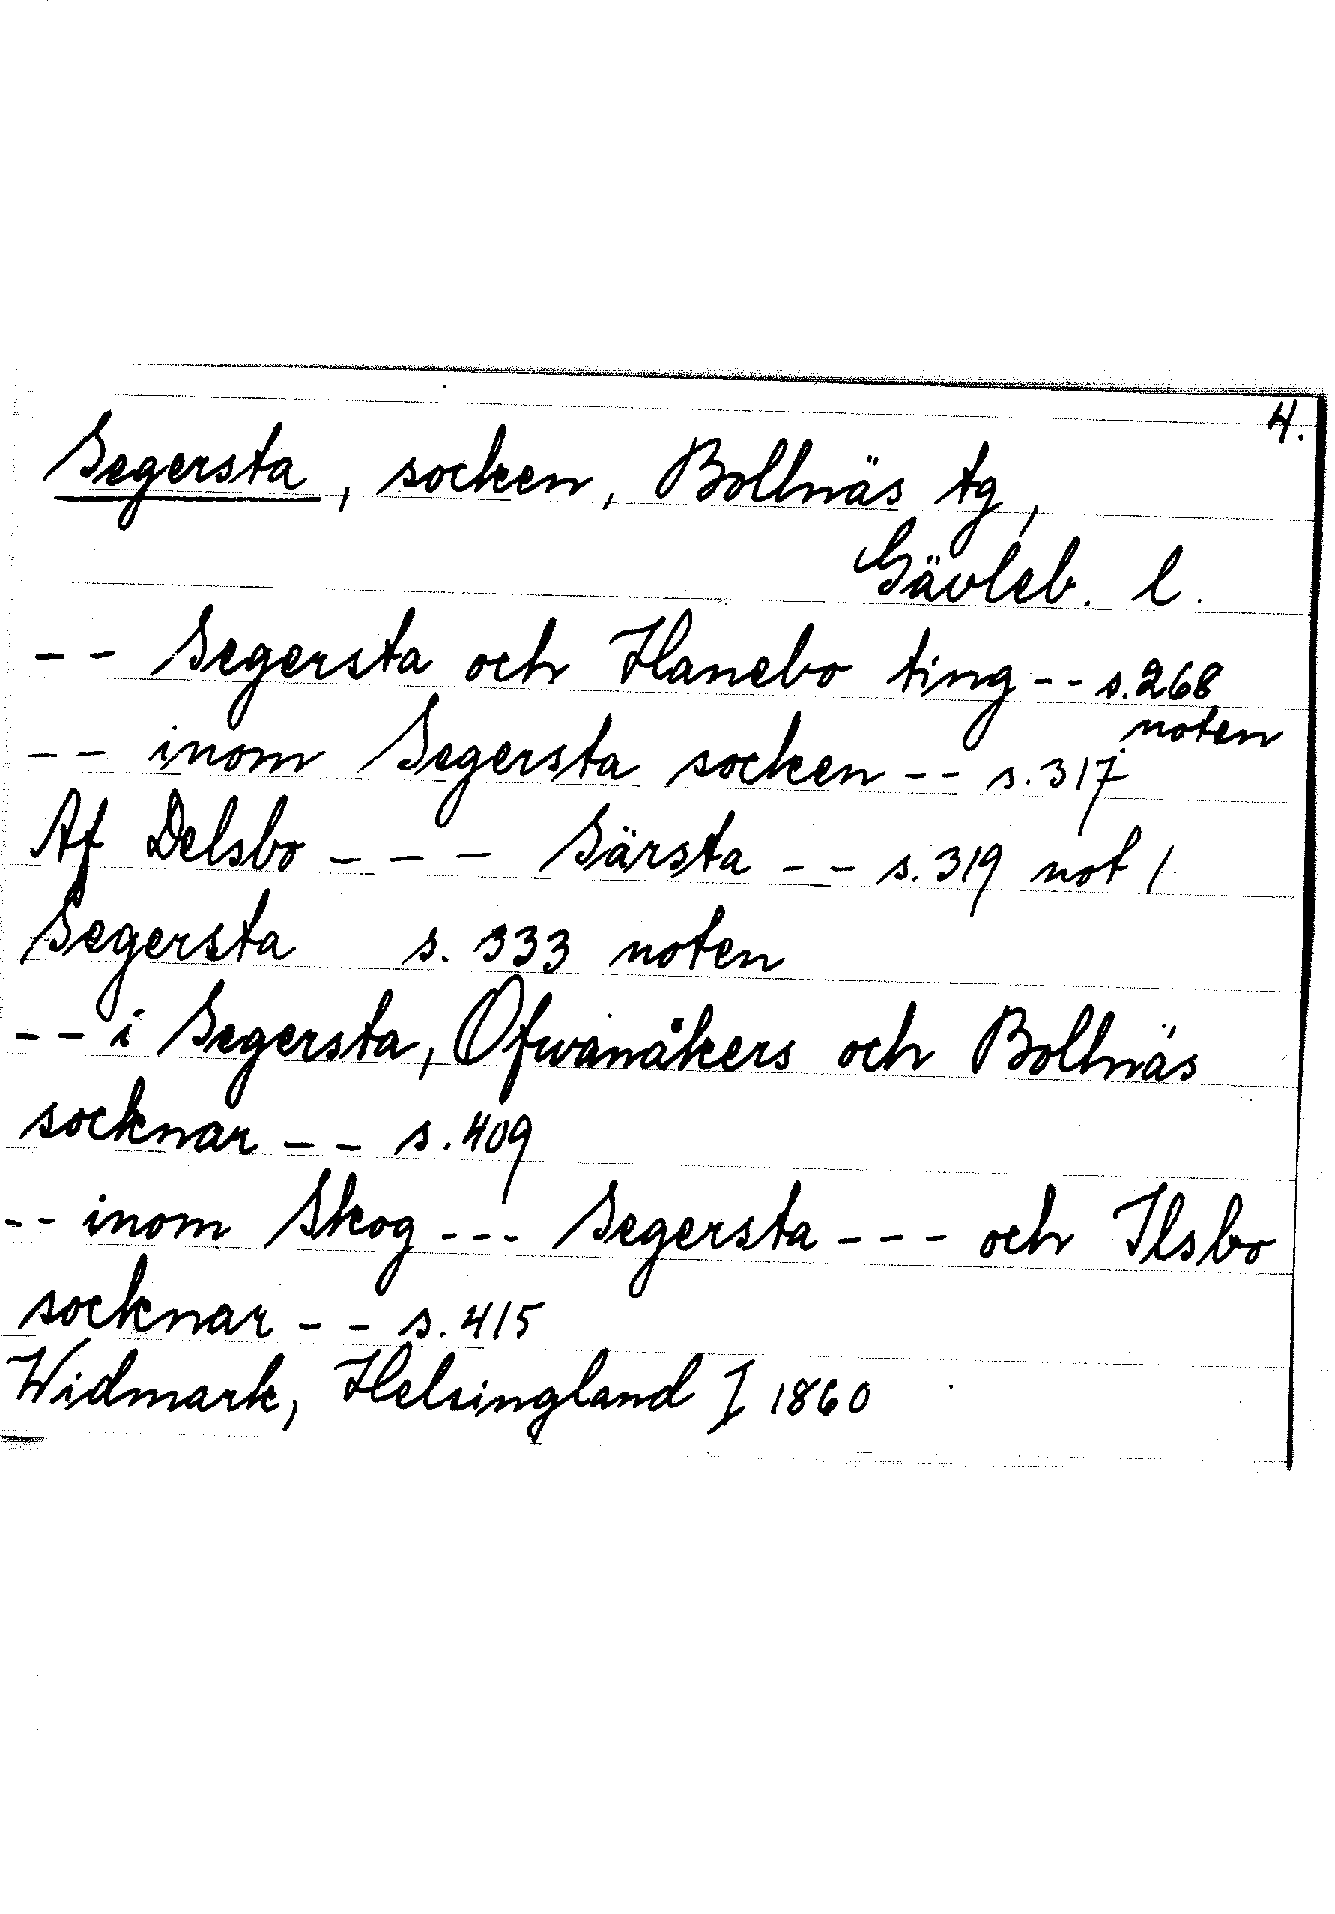 4.
Segersta, socken, Bollnäs tg,
Gävleb. l.
-- Segersta och Hanebo ting -- s.268
noten
-- inom Segersta socken -- s.317
Af Delsbo --- Särsta -- s.319 not 1
Segersta s. 333 noten
-- i Segersta, Ofwanåkers och Bollnäs
socknar -- s.409
-- inom Skog --- Segersta --- och Ilsbo
socknar -- s.415
Widmark, Helsingland I 1860